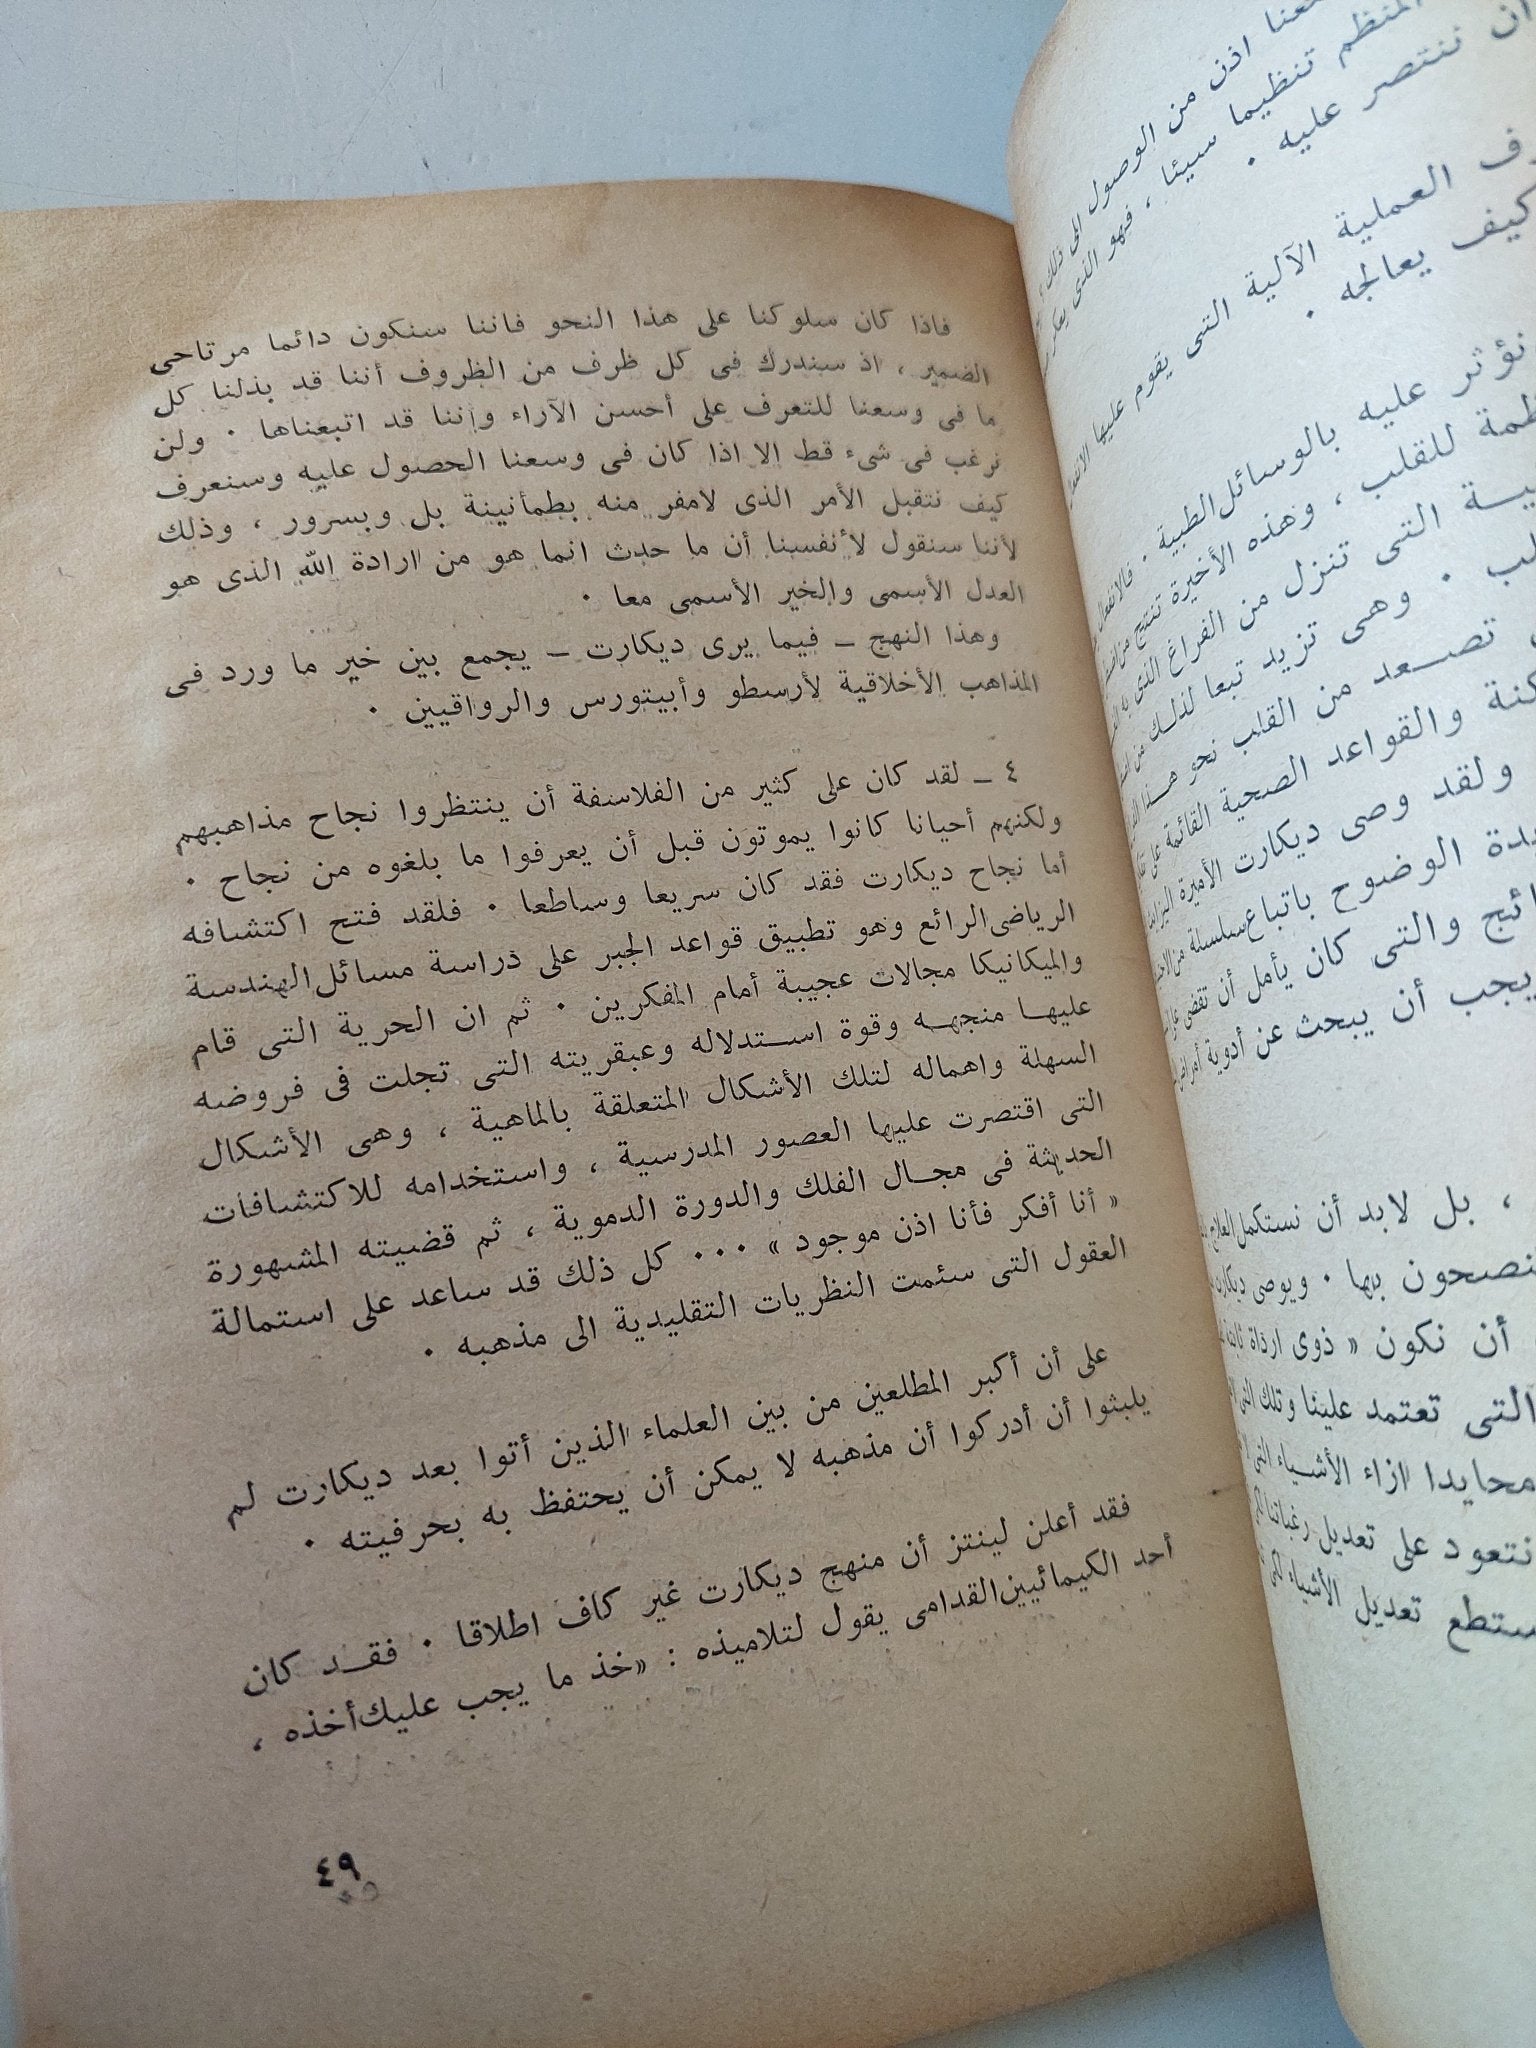 فاذا كان سلوكنا على هذا النحو فاننا سنكون دائما مرتاحى
الضمير ، اذ سندرك فى كل ظرف من الظروف أننا قد بذلنا كل
ما فى وسعنا للتعرف على أحسن الآراء وإننا قد اتبعناها . ولن
نرغب فى شىء قط الا اذا كان فى وسعنا الحصول عليه وسنعرف
كيف نتقبل الأمر الذى لامفر منه بطمأنينة بل وبسرور ، وذلك
لأننا سنقول لأنفسنا أن ما حدث انما هو من ارادة الله الذى هو
العدل الأسمى والخير الأسمى معا .
وهذا النهج ـ فيما يرى ديكارت ـ يجمع بين خير ما ورد فى
المذاهب الأخلاقية لأرسطو وأبيتورس والرواقيين .
٤ ـ لقد كان على كثير من الفلاسفة أن ينتظروا نجاح مذاهبهم
ولكنهم أحيانا كانوا يموتون قبل أن يعرفوا ما بلغوه من نجاح .
أما نجاح ديكارت فقد كان سريعا وساطعا . فلقد فتح اكتشافه
الرياضى الرائع وهو تطبيق قواعد الجبر على دراسة مسائل الهندسة
والميكانيكا مجالات عجيبة أمام المفكرين . ثم ان الحرية التى قام
عليها منجهه وقوة استدلاله وعبقريته التى تجلت فى فروضه
السهلة واهماله لتلك الأشكال المتعلقة بالماهية ، وهى الأشكال
التى اقتصرت عليها العصور المدرسية ، واستخدامه للاكتشافات
الحديثة فى مجال الفلك والدورة الدموية ، ثم قضيته المشهورة
« أنا أفكر فأنا اذن موجود » ... كل ذلك قد ساعد على استمالة
العقول التى سئمت النظريات التقليدية الى مذهبه .
على أن أكبر المطلعين من بين العلماء الذين أتوا بعد ديكارت لم
يلبثوا أن أدركوا أن مذهبه لا يمكن أن يحتفظ به بحرفيته .
فقد أعلن لينتز أن منهج ديكارت غير كاف اطلاقا . فقد كان
أحد الكيمائيين القدامى يقول لتلاميذه : «خذ ما يجب عليك أخذه ،
٤٩
اذن من الوصول الى ذلك ،
المنظم تنظيما سيئا ، فهو الذى
أن ننتصر عليه .
العملية الآلية التى يقوم عليها
كيف يعالجه .
نؤثر عليه بالوسائل الطبية .
للقلب ، وهذه الأخيرة تنتج من
التى تنزل من الفراغ الذى به
. وهى تزيد تبعا لذلك من
تصعد من القلب نحو هذا
والقواعد الصحية القائمة على
ولقد وصى ديكارت الأميرة
الوضوح باتباع سلسلة من
والتى كان يأمل أن تقضى
يجب أن يبحث عن أدوية
، بل لابد أن نستكمل العلاج
بها . ويوصى ديكارت
أن نكون « ذوى ارادة ثابتة
التى تعتمد علينا وتلك التى
محايدا ازاء الأشياء التى
نتعود على تعديل رغباتنا
تعديل الأشياء